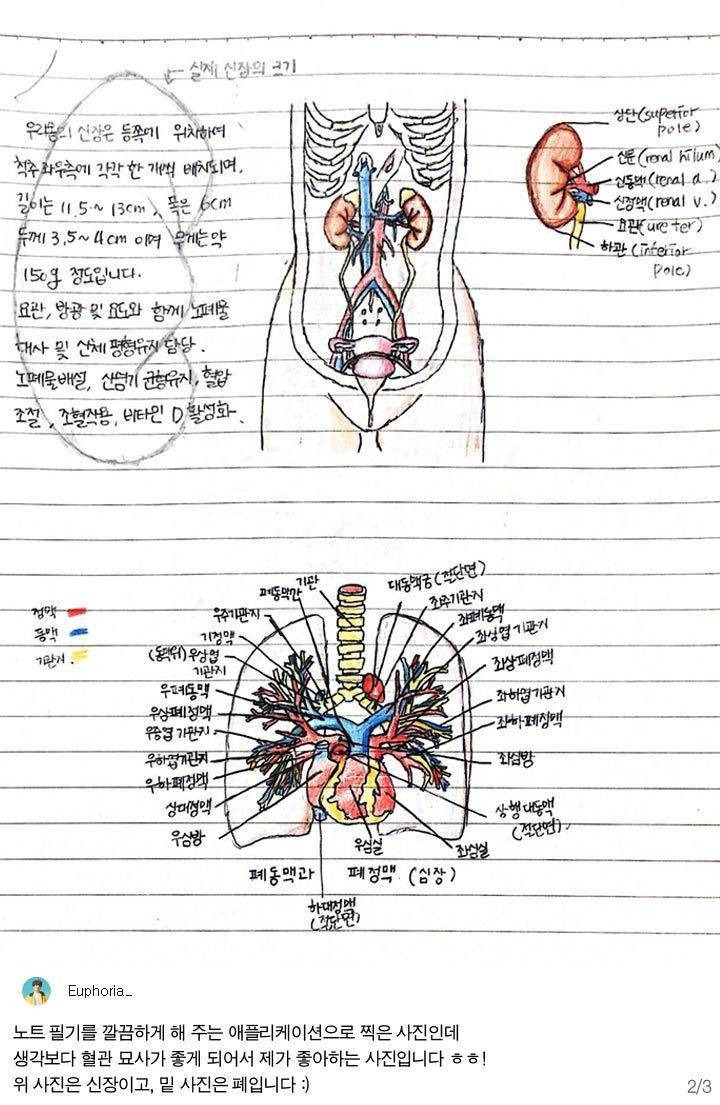 실제 신장의 크기
우리몸의 신장은 등쪽에 위치하여
척추 좌우측에 각각 한 개씩 배치되며,
길이는 11.5~13cm, 폭은 6cm
두께 3.5~4cm 이며 무게는 약
150g 정도입니다.
요관, 방광 및 요도와 함께 노폐물
대사 및 신체 평형유지 담당.
노폐물배설, 산염기 균형유지, 혈압
조절, 조혈작용, 비타민 D 활성화.
상단(superior
pole)
신문(renal hilum)
신동맥(renal a.)
신정맥(renal v.)
요관(ureter)
하관(inferior
pole)
정맥
동맥
기관지
기관
폐동맥간
우주기관지
기정맥
(동맥위)우상엽
기관지
우폐동맥
우상폐정맥
우중엽 기관지
우하엽기관지
우하폐정맥
상대정맥
우심방
대동맥궁(절단면)
좌주기관지
좌폐동맥
좌상엽 기관지
좌상폐정맥
좌하엽기관지
좌하폐정맥
좌심방
상행대동맥
(절단면)
우심실
좌심실
폐동맥과 폐정맥 (심장)
하대정맥
(절단면)
Euphoria_
노트 필기를 깔끔하게 해 주는 애플리케이션으로 찍은 사진인데
생각보다 혈관 묘사가 좋게 되어서 제가 좋아하는 사진입니다 ㅎㅎ!
위 사진은 신장이고, 밑 사진은 폐입니다 :)
2/3